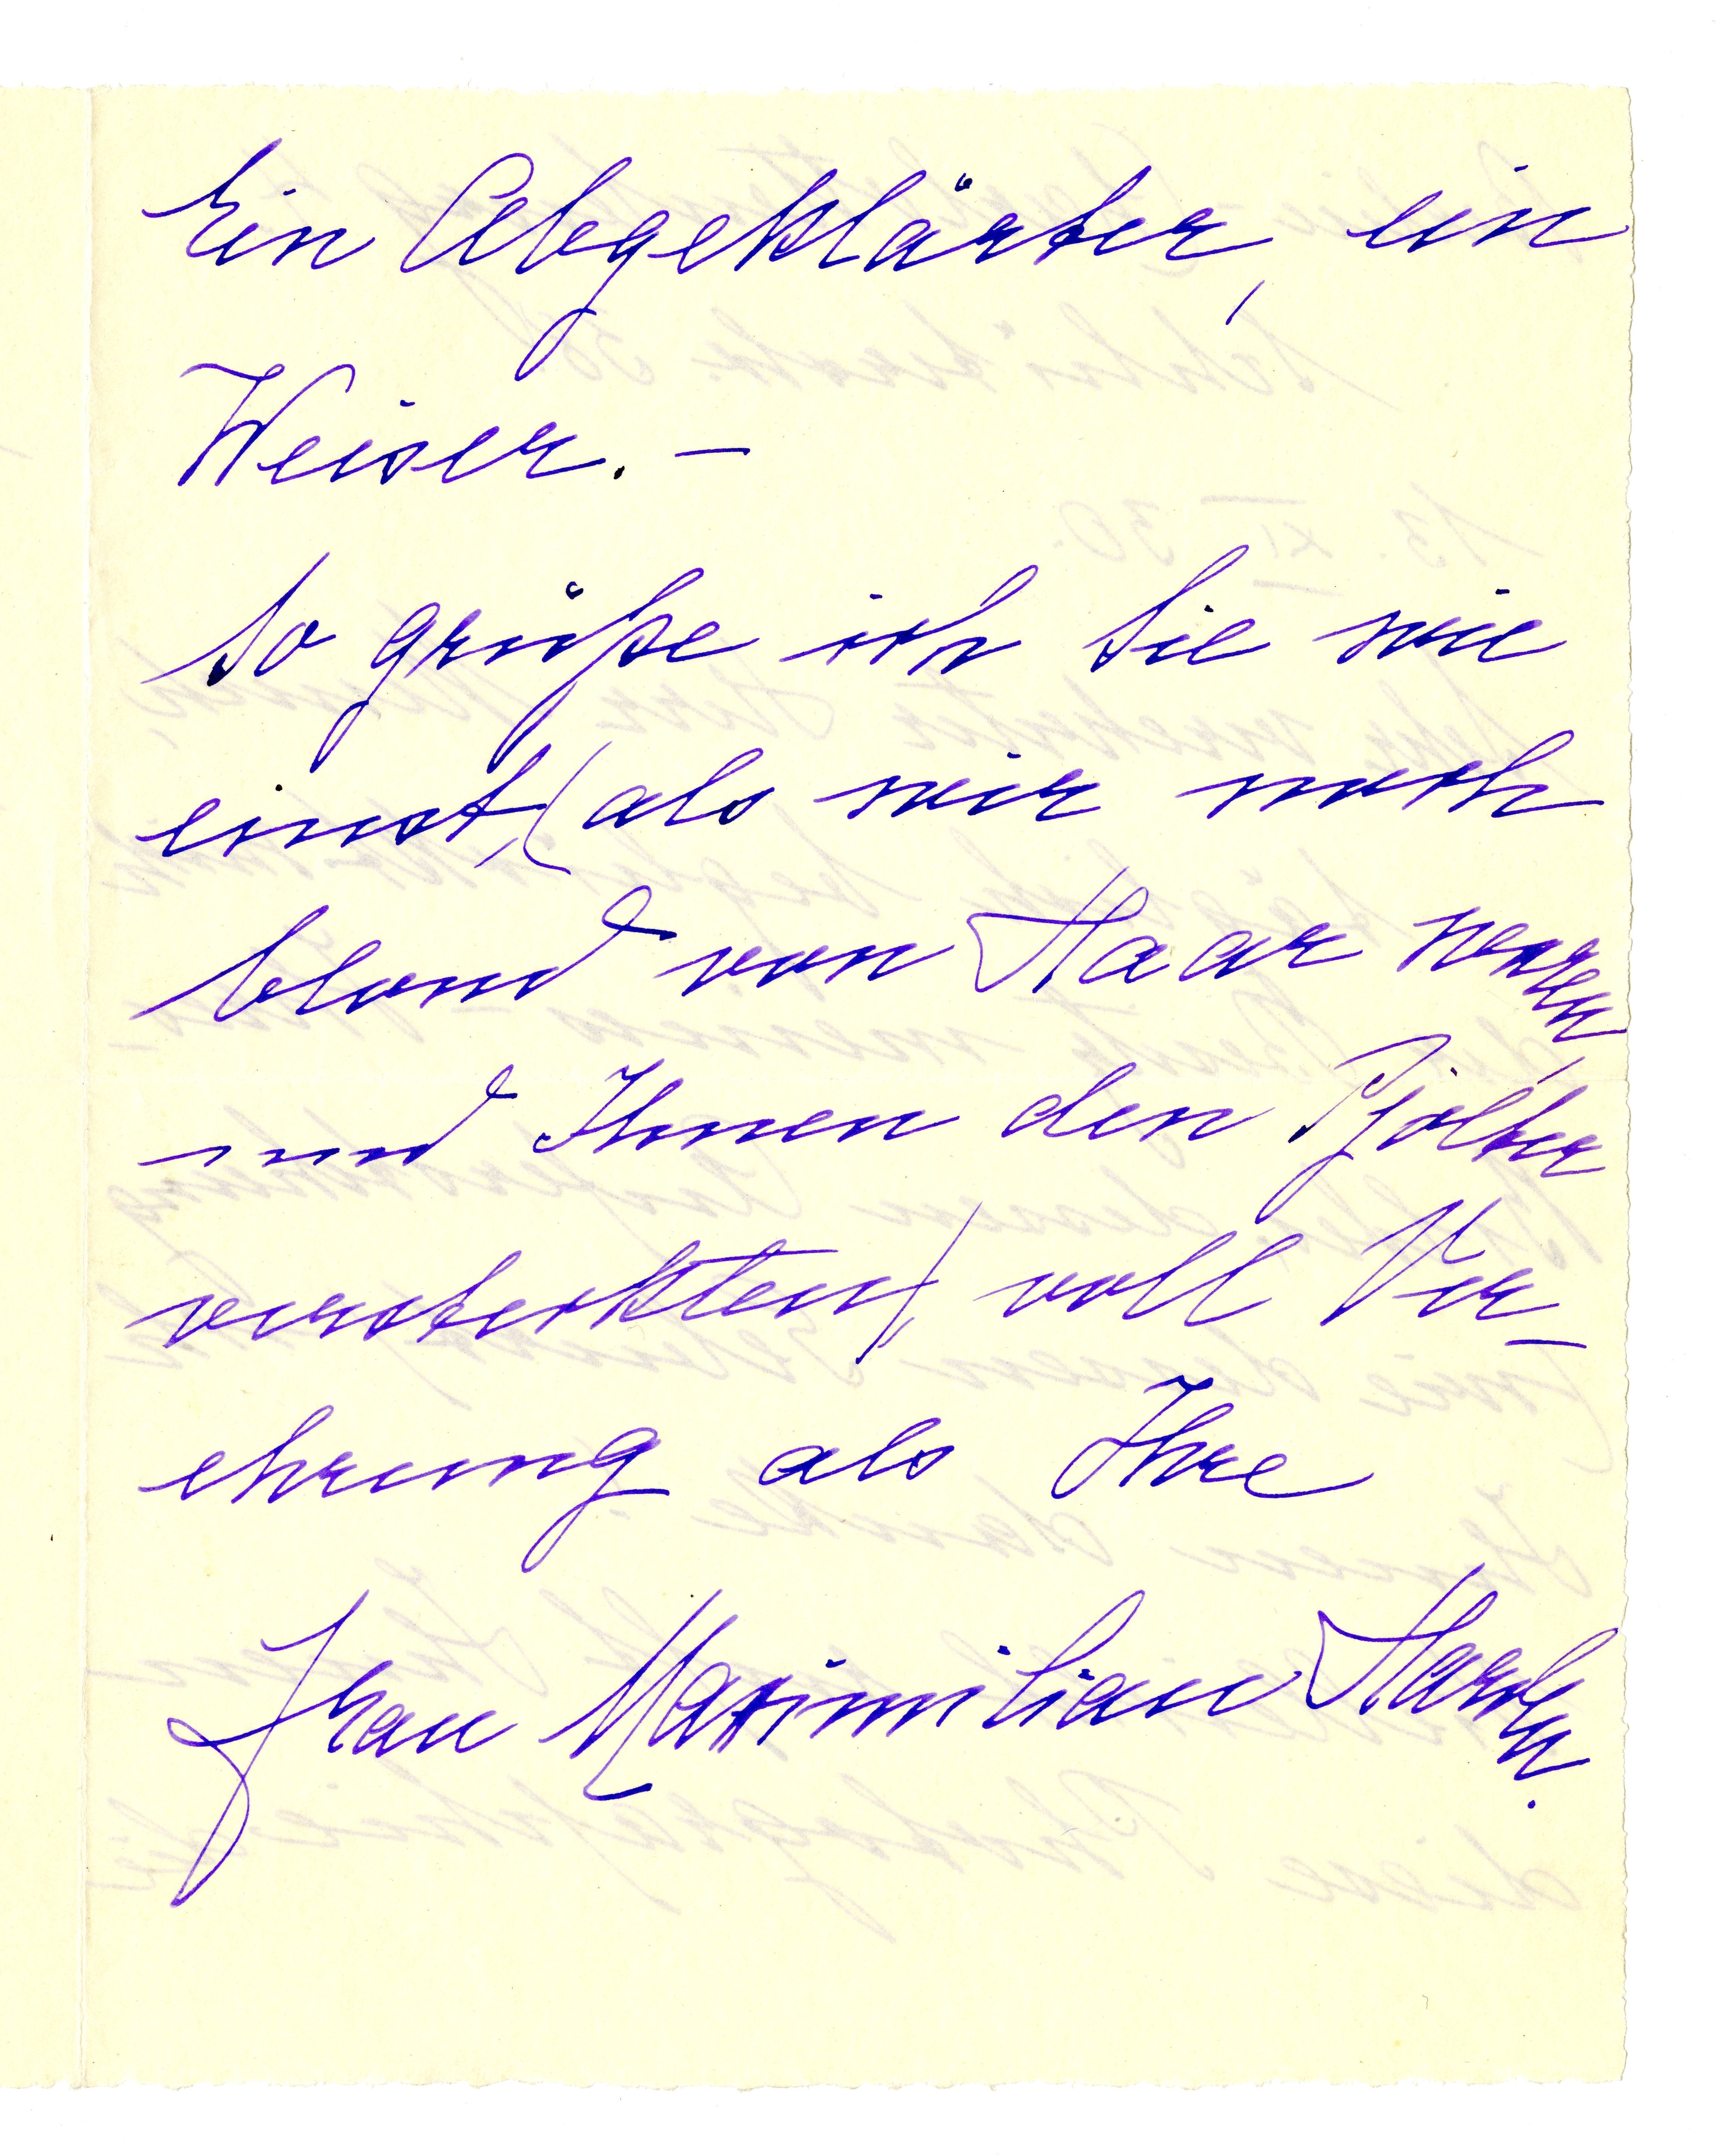 Ein Abgeklärter, ein
Weiser. –
So grüße ich Sie wie
einst, (als wir noch
blond von Haar waren
und Ihnen den Pjolter
versteckten), voll Ver-
ehrung als Ihre
Frau Maximilian Harden.